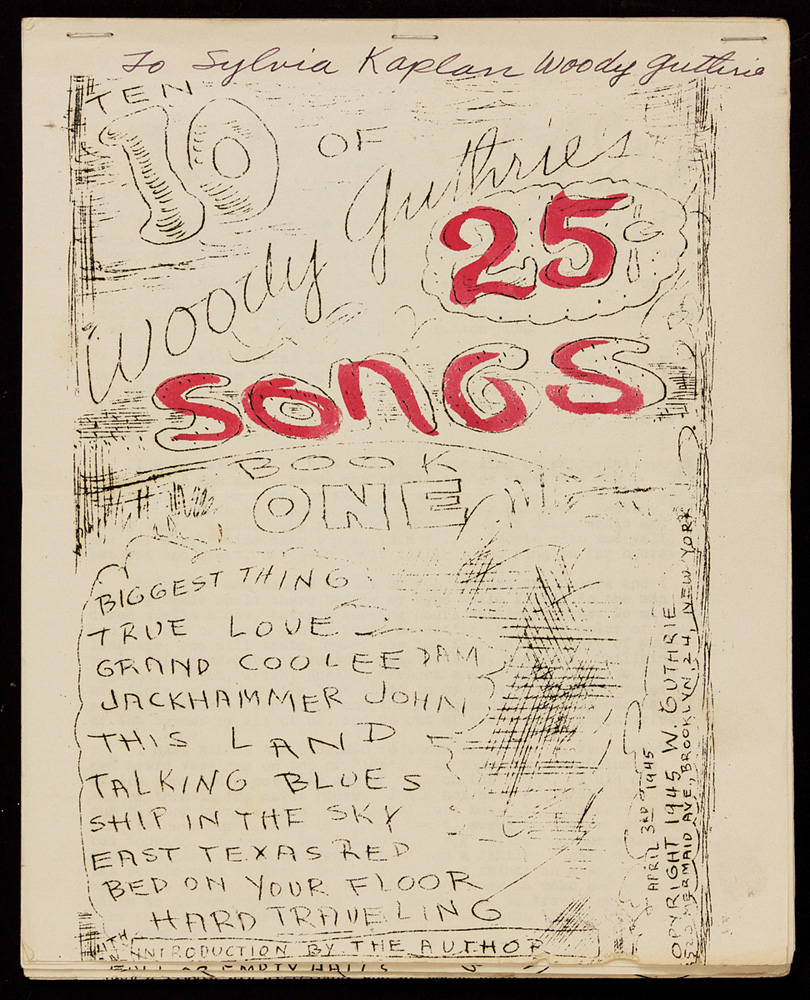 To Sylvia Kaplan Woody Guthrie
TEN
10 OF
Woody Guthrie's
25
SONGS
BOOK
ONE
BIGGEST THING
TRUE LOVE
GRAND COOLEE DAM
JACKHAMMER JOHN
THIS LAND
TALKING BLUES
SHIP IN THE SKY
EAST TEXAS RED
BED ON YOUR FLOOR
HARD TRAVELING
WITH INTRODUCTION BY THE AUTHOR
FULL OR EMPTY HALLS
APRIL 3RD 1945
COPYRIGHT 1945 W. GUTHRIE
MERMAID AVE., BROOKLYN 24, NEW YORK